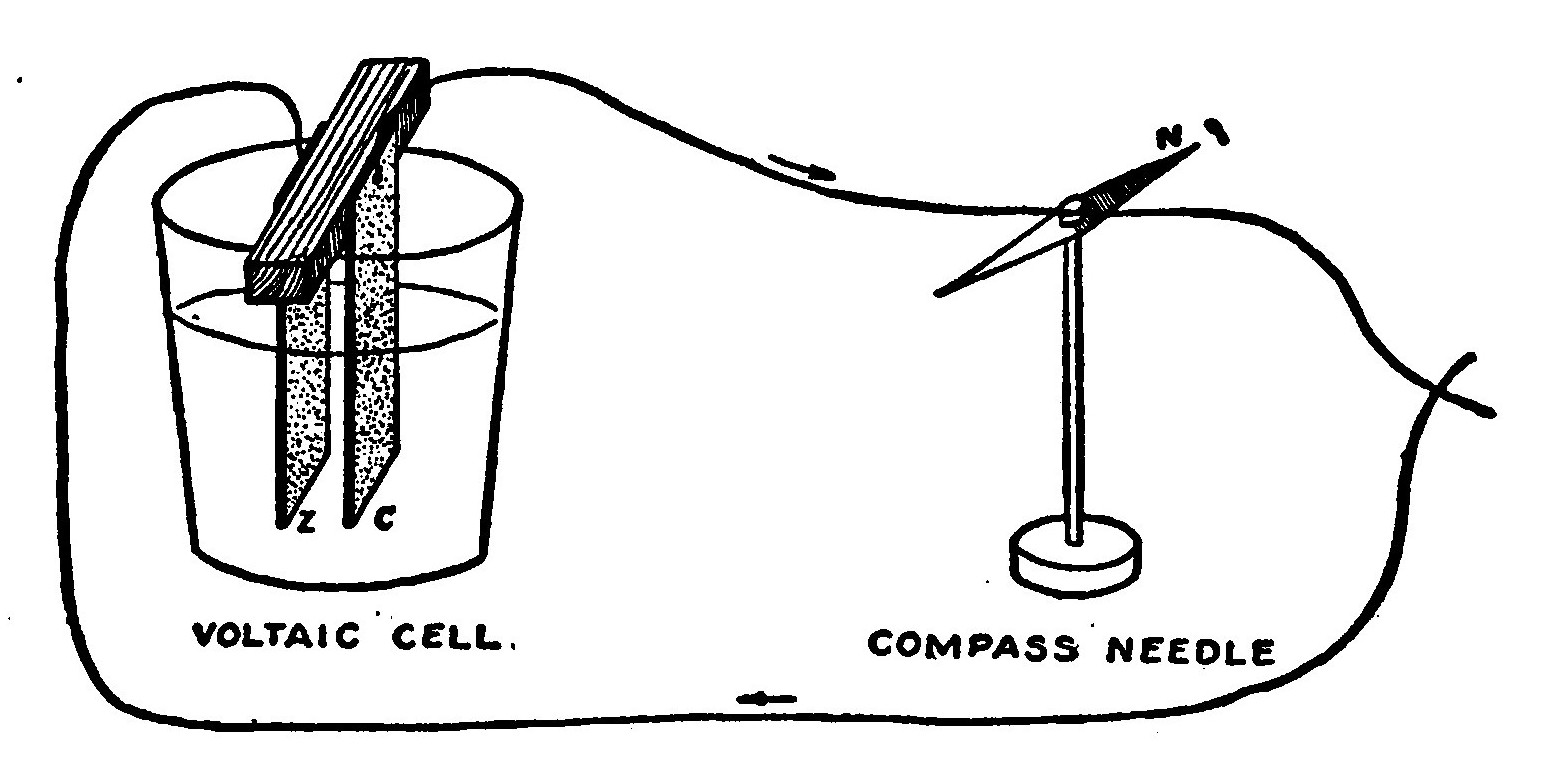 N
Z C
VOLTAIC CELL.
COMPASS NEEDLE